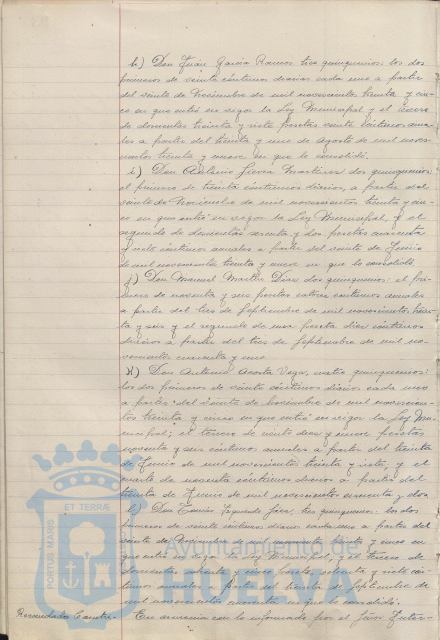 h) Don Juan García Ramos tres quinquenios: los dos
primeros de veinte céntimos diarios cada uno a partir
del veinte de Noviembre de mil novecientos treinta y cin-
co en que entró en vigor la Ley Municipal y el tercero
de doscientas treinta y siete pesetas veinte céntimos anua-
les a partir del treinta y uno de agosto de mil nove-
cientos treinta y nueve en que lo consolidó.
i) Don Martínez dos quinquenios:
el primero de treinta céntimos diarios, a partir del
veinte de Noviembre de mil novecientos treinta y cin-
co en que entró en vigor la Ley Municipal, y el
segundo de doscientas setenta y dos pesetas cuarenta
y siete céntimos anuales a partir del veinte de Junio
de mil novecientos treinta y nueve en que lo consolidó.
j) Don Manuel Martín Díaz dos quinquenios: el pri-
mero de noventa y seis pesetas catorce céntimos anuales
a partir del tres de Septiembre de mil novecientos trein-
ta y seis y el segundo de una peseta diez céntimos
diarios a partir del tres de Septiembre de mil no-
vecientos cuarenta y uno.
k) Don Antonio Acosta Vega, cuatro quinquenios:
los dos primeros de veinte céntimos diarios cada uno
a partir del veinte de Noviembre de mil novecien-
tos treinta y cinco en que entró en vigor la Ley Mu-
nicipal; el tercero de ciento diez y nueve pesetas
y seis céntimos anuales a partir del treinta
de Junio de mil novecientos treinta y siete, y el
cuarto de noventa céntimos diarios a partir del
treinta de Junio de mil novecientos cuarenta y dos.
l) Don tres quinquenios: los dos
primeros de veinte céntimos diarios cada uno a partir del
veinte de Noviembre de mil novecientos treinta y cinco en
que entró en vigor la Ley Municipal, y el tercero de
doscientas y siete cén-
timos anuales a partir del treinta de Septiembre de
mil novecientos en que lo consolidó.
En armonía con lo informado por el Señor Inter-
PORTUS MARIS ET TERRÆ
Ayuntamiento de
HUELVA